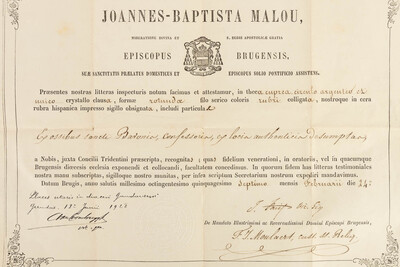 JOANNES-BAPTISTA MALOU,
MISERATIONE DIVINA ET S. SEDIS APOSTOLICÆ GRATIA
EPISCOPUS BRUGENSIS,
SUÆ SANCTITATIS PRÆLATUS DOMESTICUS ET EPISCOPUS SOLIO PONTIFICIO ASSISTENS.
Præsentes nostras litteras inspecturis notum facimus et attestamur, in theca cuprea argento
unico crystallo clausa, formæ rotundæ filo serico coloris rubri colligata, nostroque in cera
rubra hispanica impresso sigillo obsignata, includi particulas
ex ossibus Sancti confessoris, ex locis authenticis desumptas
a Nobis, juxta Concilii Tridentini præscripta, recognitas quas fidelium venerationi, in oratorio, vel in quacumque
Brugensis diœcesis ecclesia exponendi et collocandi, facultatem concedimus. In quorum fidem has litteras testimoniales
nostra manu subscriptas, sigilloque nostro munitas, per infra scriptum Secretarium nostrum expediri mandavimus.
Datum Brugis, anno salutis millesimo octingentesimo quinquagesimo septimo mensis Februarii die 24ᵃ
De Mandato Illustrissimi ac Reverendissimi Domini Episcopi Brugensis,